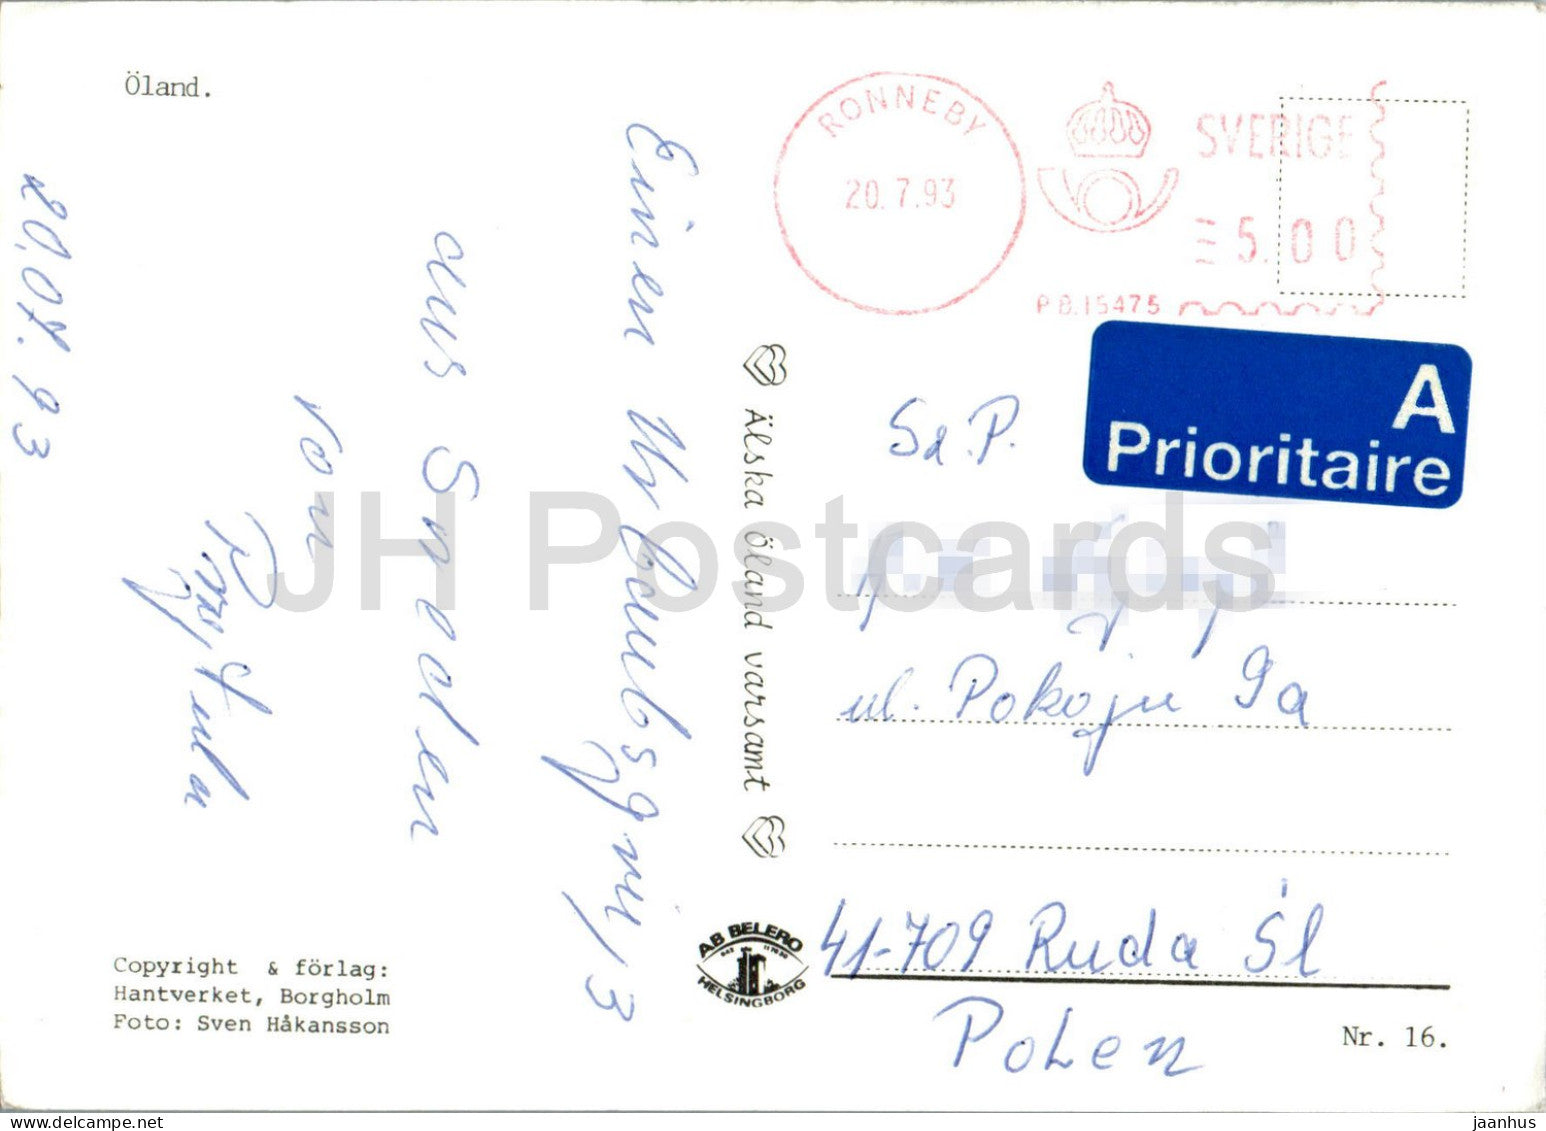 Öland.
RONNEBY
20.7.93
SVERIGE
5.00
P.B.15475
A
Prioritaire
20.07.93
Einen Urlaubsgruß
aus Sweden
von
Älska Öland varsamt
JH Postcards
Sz. P.
ul. Pokoju 9a
41-709 Ruda Śl
Polen
AB BELERO
HELSINGBORG
Copyright & förlag:
Hantverket, Borgholm
Foto: Sven Håkansson
Nr. 16.
jaanhus